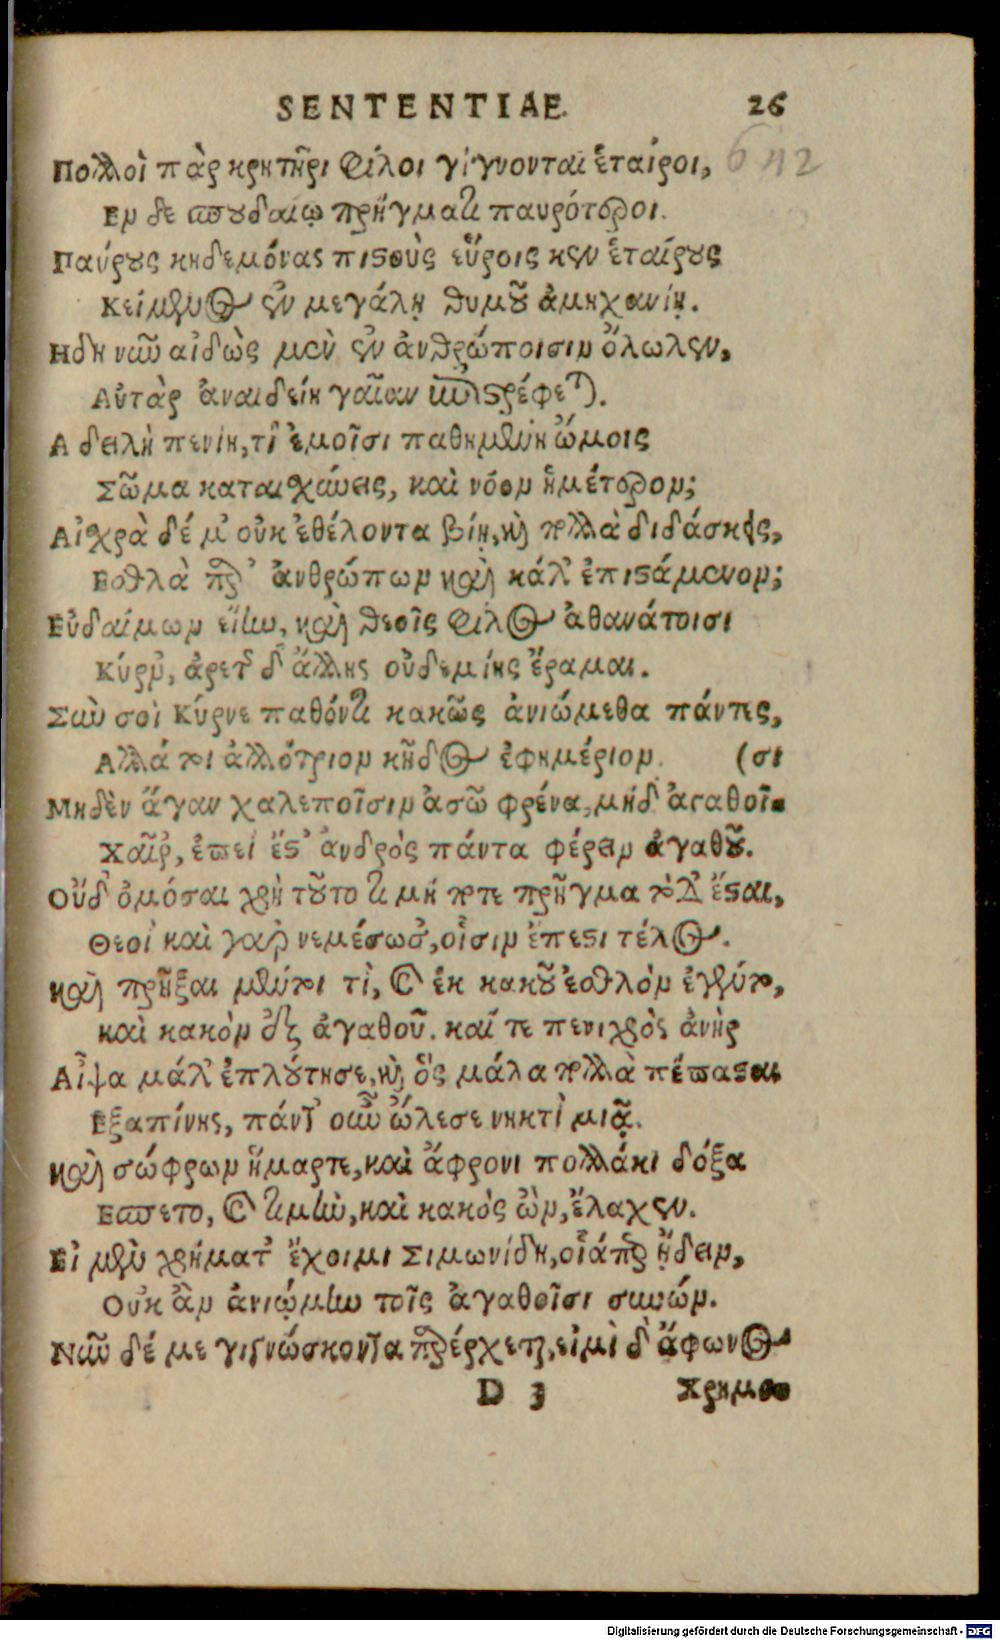 SENTENTIAE. 26
642
Πολλοὶ πὰρ κρητῆρι φίλοι γίγνονται ἑταίροι,
Εν δὲ σπουδαίῳ πρήγματι παυρότεροι.
Παύρους κηδεμόνας πιστοὺς εὕροις κεν ἑταίρους
Κείμενος ἐν μεγάλῃ θυμοῦ ἀμηχανίῃ.
Ηδη νῦν αἰδὼς μὲν ἐν ἀνθρώποισιν ὄλωλεν,
Αὐτὰρ ἀναιδείη γαῖαν ἐπιστρέφεται.
Α δειλὴ πενίη, τί ἐμοῖσι παθημένη ὤμοις
Σῶμα καταισχύνεις, καὶ νόον ἡμέτερον;
Αἰσχρὰ δέ μ' οὐκ ἐθέλοντα βίῃ, καὶ πολλὰ διδάσκεις,
Εσθλὰ παρ' ἀνθρώπων καὶ κάλ' ἐπιστάμενον;
Εὐδαίμων εἴην, καὶ θεοῖς φίλος ἀθανάτοισι
Κύρν', ἀρετῆς δ' ἄλλης οὐδεμίης ἔραμαι.
Σὺν σοὶ Κύρνε παθόντι κακῶς ἀνιώμεθα πάντες,
Αλλά τοι ἀλλότριον κῆδος ἐφημέριον. (σι
Μηδὲν ἄγαν χαλεποῖσιν ἀσῶ φρένα, μήδ' ἀγαθοῖ-
Χαῖρ', ἐπεὶ ἔστ' ἀνδρὸς πάντα φέρειν ἀγαθοῦ.
Οὔδ' ὀμόσαι χρὴ τοῦτο τι μή ποτε πρῆγμα τόδ' ἔσται,
Θεοὶ καὶ γὰρ νεμέσωσ', οἷσιν ἔπεστι τέλος.
καὶ πρῆξαι μέντοι τὶ, καὶ ἐκ κακοῦ ἐσθλὸν ἐγένετο,
καὶ κακὸν ἐξ ἀγαθοῦ. καί τε πενιχρὸς ἀνὴρ
Αἶψα μάλ' ἐπλούτησε, καὶ ὃς μάλα πολλὰ πέπασται
Εξαπίνης, πάντ' οὖν ὤλεσε νηκτὶ μιᾷ.
καὶ σώφρων ἥμαρτε, καὶ ἄφρονι πολλάκι δόξα
Εσπετο, καὶ τιμὴν, καὶ κακὸς ὢν, ἔλαχεν.
Εἰ μὲν χρήματ' ἔχοιμι Σιμωνίδη, οἷάπερ ᾔδειν,
Οὐκ ἂν ἀνιῴμην τοῖς ἀγαθοῖσι συνών.
Νῦν δέ με γιγνώσκοντα παρέρχεται, εἰμὶ δ' ἄφωνος
D 3 Χρημο
Digitalisierung gefördert durch die Deutsche Forschungsgemeinschaft - DFG